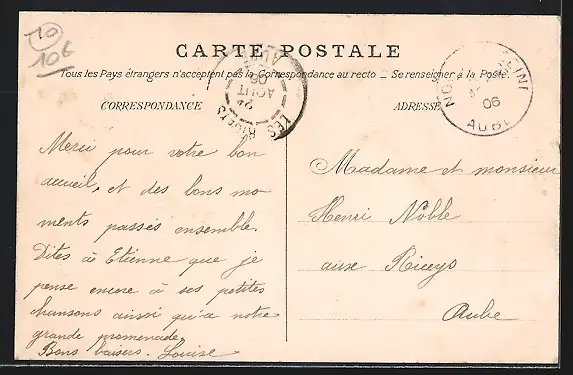 10
106
CARTE POSTALE
Tous les Pays étrangers n'acceptent pas la Correspondance au recto — Se renseigner à la Poste.
CORRESPONDANCE
ADRESSE
LES RICEYS
24
AOUT
06
AUBE
Merci pour votre bon
accueil, et des bons mo-
ments passés ensemble.
Dites à Etienne que je
pense encore à ses petites
chansons ainsi qu'à notre
grande promenade,
Bons baisers. Louise
Madame et monsieur
Henri Noble
aux Riceys
Aube